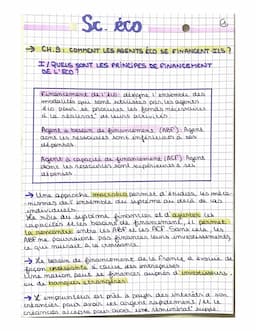 Sc. éco
→ CH.9: COMMENT LES AGENTS ÉCO SE FINANCENT ILS ?
I / QUELS SONT LES PRINCIPES DE FINANCEMENT
DE L'ÉCO ?
Financement de l'éco: désigne l'ensemble des
modalités qui sont utilisées par les agents
éco pour se procurer les fonds nécessaires
à la réalisat° de leurs activités.
Agent à besoin de financement (ABF): Agent
dont les ressources sont inférieures à ses
dépenses.
Agent à capacité de financement (ACF): Agent
dont les ressources sont supérieures à ses
dépenses.
→ Une approche macroéco permet d'étudier les méca-
nismes de l'ensemble du
individuels.
Le rôle du système financier est d'
capacités et les besoins de financement, il permet
la rencontre entre les ABF et les ACF. Sans cela, les
ABF ne pourraient pas financer leurs investissements,
ce qui nuirait à la croissance.
→ Le besoin de financement de la France a évolué de
façon croissante à cause des entreprises.
Une nation peut se financer auprès d'investisseurs
ou de banques étrangères.
→ L'emprunteur est prêt à payer des intérêts à son
créancier pour avoir un argent rapidement / et le
créancier accepte pour avoir une rémunérat° suppl.